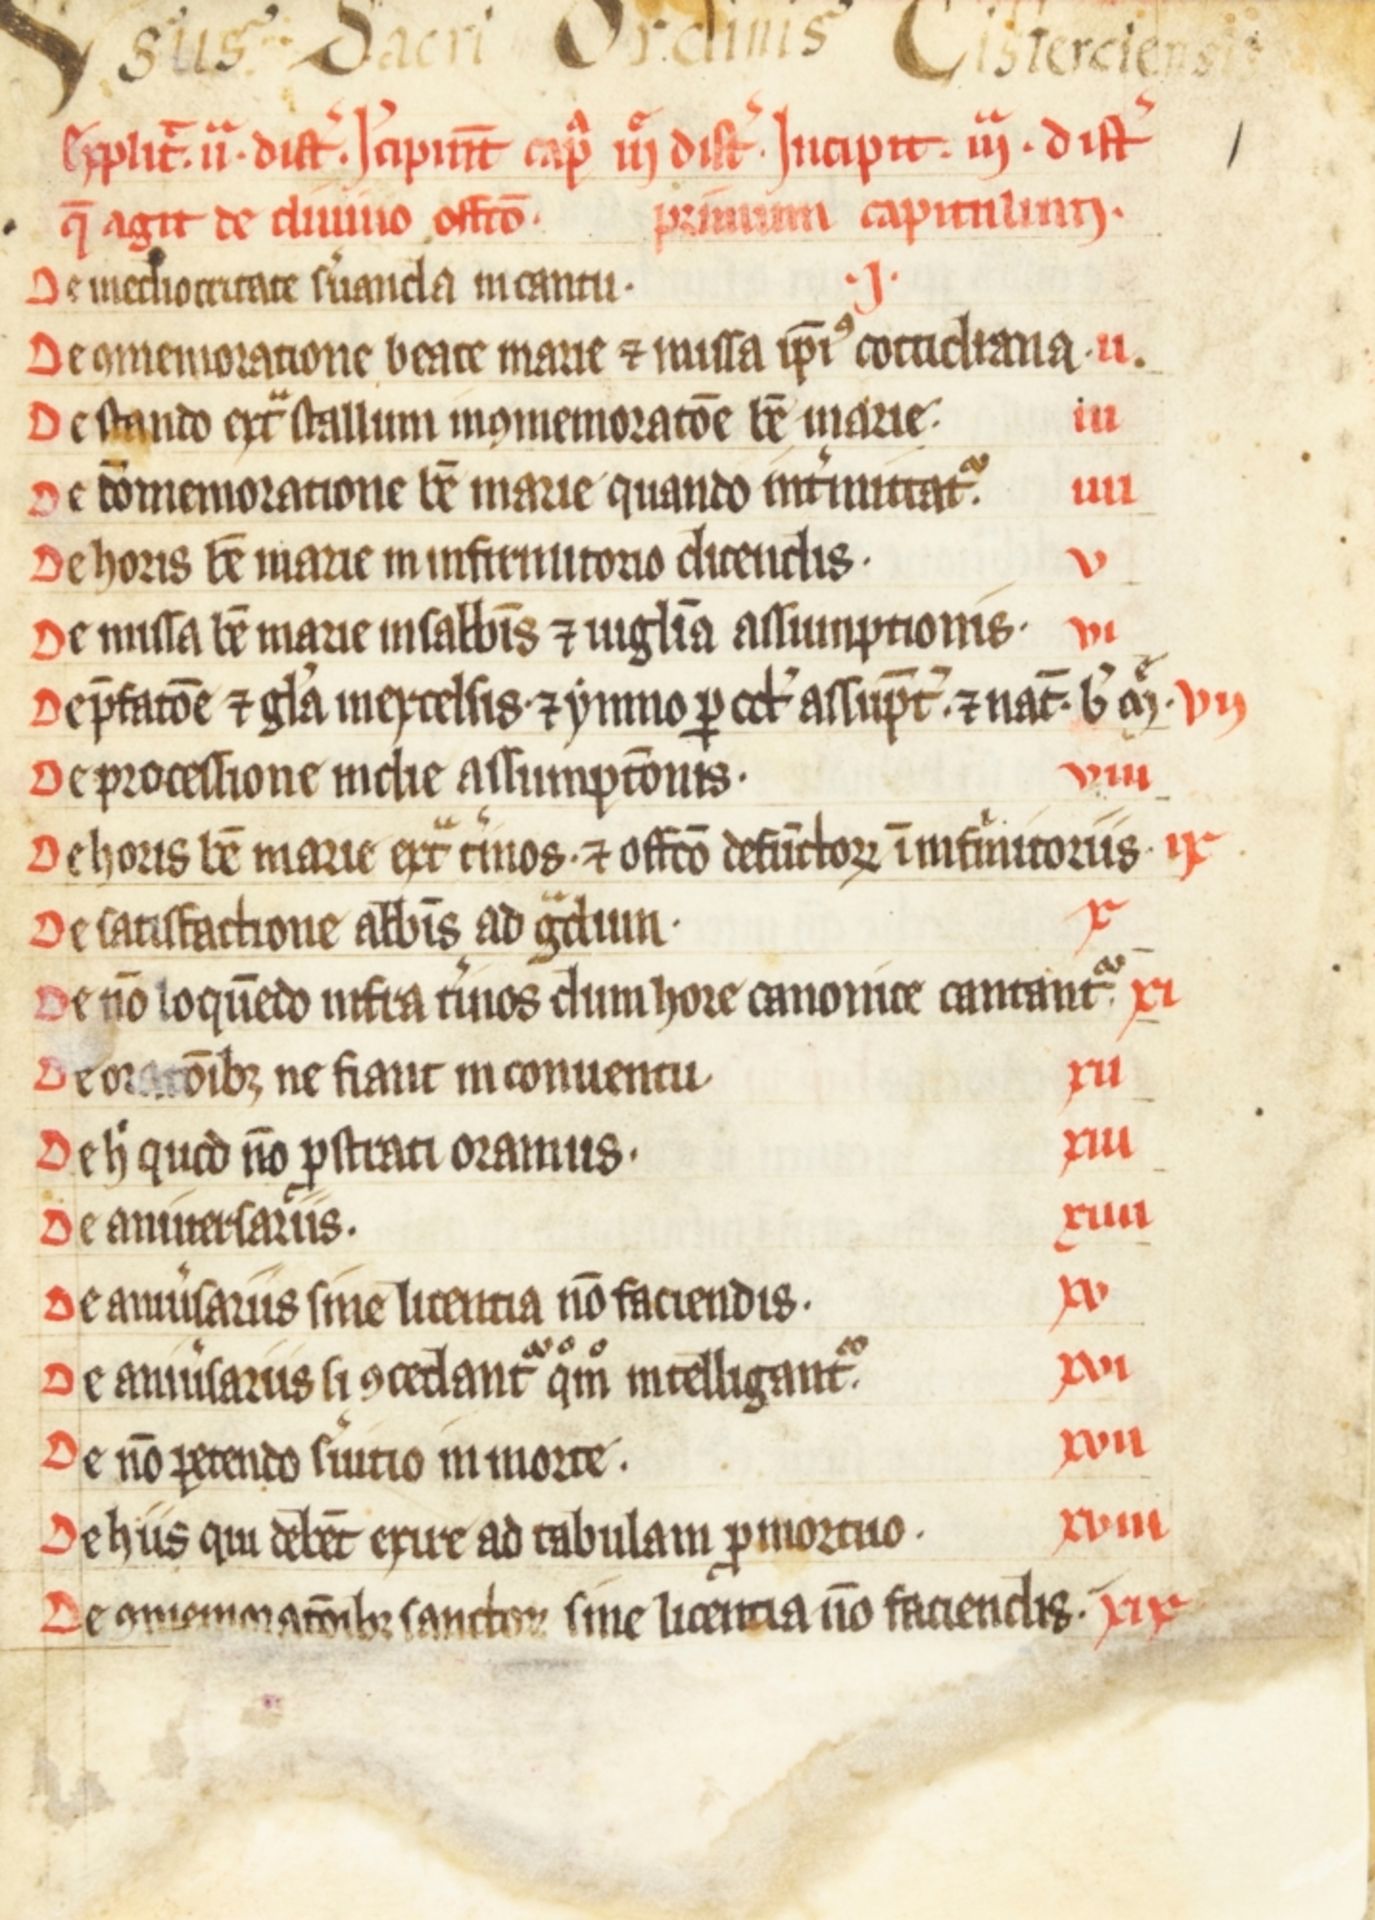 Vsus Sacri Ordinis Cisterciensis
Explic̄. ii. dist̉. Icipiūt cap̄ iij dist̉. Incipit. iij. dist̉ 1
q̄ agit de diuino offico̅. primum capitulum.
De mediocritate ẜuanda in cantu. .I.
De ꝯmemoratione beate marie ⁊ missa ip̄iꝰ cottidiana. ii.
De stando ext̉ stallum in ꝯmemorato̅e be̅ marie. iii
De co̅memoratione be̅ marie quando int̉mittat̉. iiii
De horis be̅ marie in infirmitorio dicendis. v
De missa be̅ marie in sabbi̅s ⁊ uigli̅a assumptionis. vi
De p̄fato̅e ⁊ gl̉a in excelsis. ⁊ ymno ꝑ oct̉ assup̅t̉. ⁊ nat̅. b̉ m̉. vii
De processione in die assumpto̅nis. viii
De horis be̅ marie ext̉ t̉minos. ⁊ offico̅ defu̅ctoꝝ i̅ infirmitoriis. ix
De satisfactione abbi̅s ad g̉dum. x
De no̅ loque̅do infra t̉minos dum hore canonice cantant̉. xi
De orato̅ibꝫ ne fiant in conuentu. xii
De h̉ quod no̅ ꝓstrati oramus. xiii
De aniuersariis. xiiii
De aniủsariis sine licentia no̅ faciendis. xv
De aniủsariis si ꝯcedant̉ qᵒmᵒ intelligant̉. xvi
De no̅ petendo ẜuitio in morte. xvii
De hiis qui debe̅t exire ad tabulam ꝓ mortuo. xviii
De ꝯmemorato̅ibꝫ sanctoꝝ sine licentia no̅ faciendis. xix